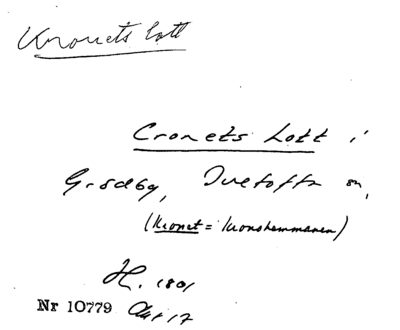 Kronets lott
Cronets Lott i
Grödby, Tvetofta sn,
(Kronet = kronohemmanen)
H. 1801
Nr 10779 Akt 17